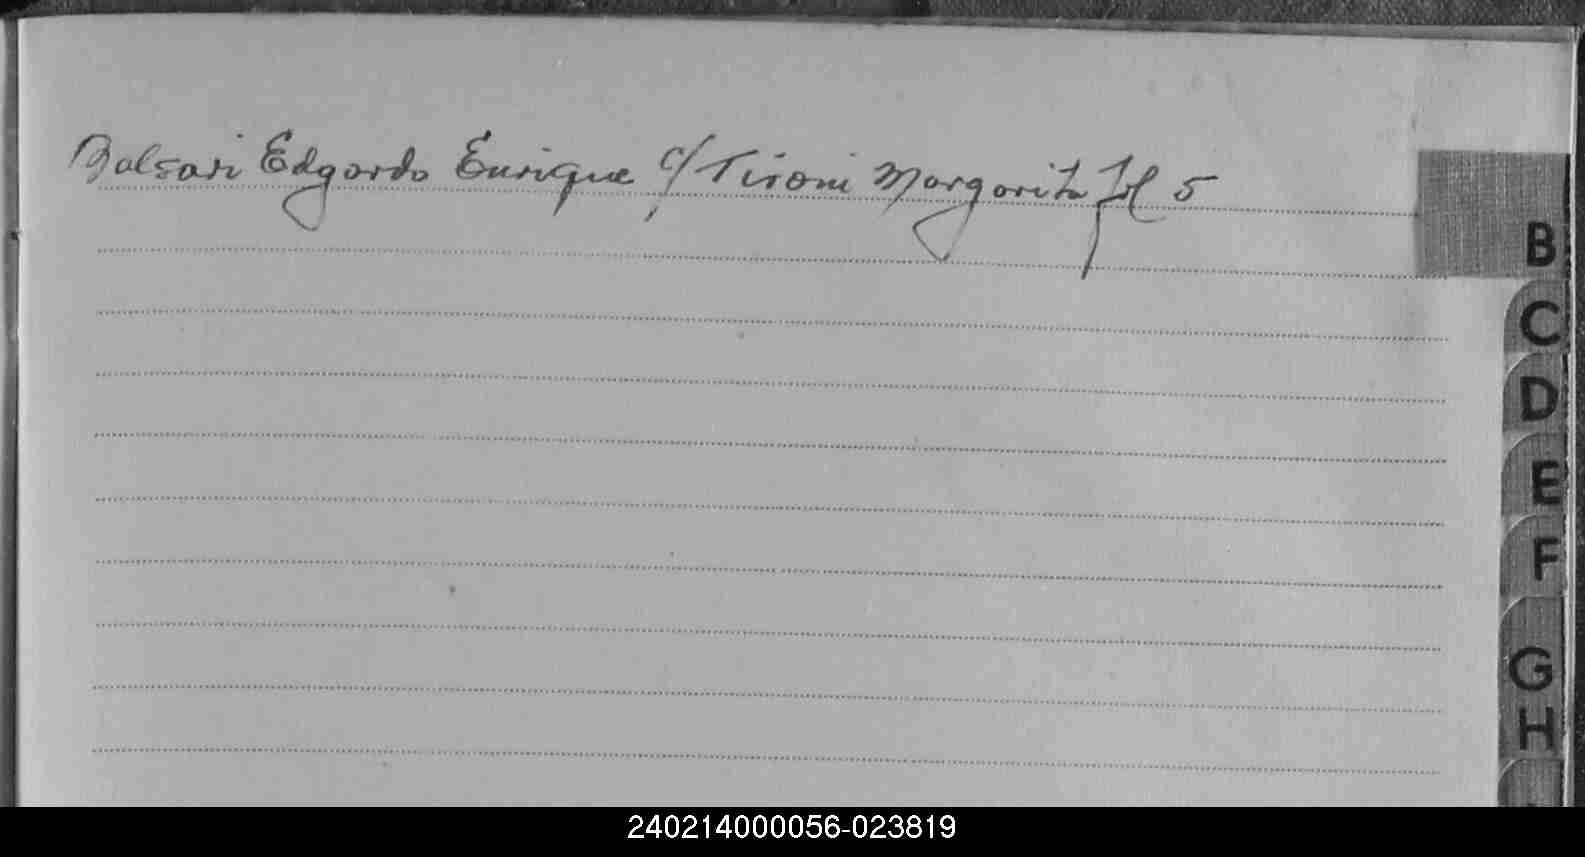 Balsari Edgardo Enrique c/ Tironi Margarita fol 5
B
C
D
E
F
G
H
240214000056-023819